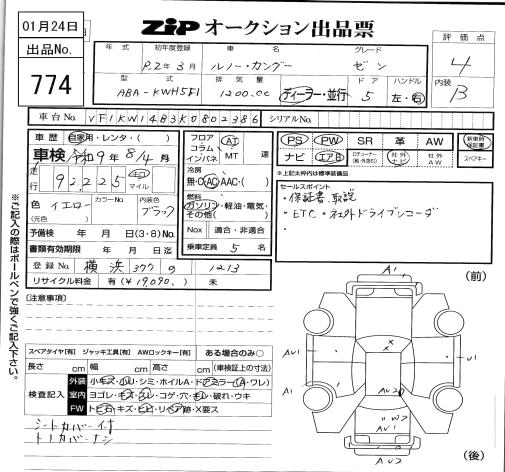 01月24日
出品No.
774
ZiP オークション出品票
評価点
4
内装
B
年式 初年度登録 車名 グレード
R.2年3月 ルノー・カングー ゼン
型式 排気量 ドア ハンドル
ABA-KWH5F1 1200.CC ディーラー・並行 5 左・右
車台No. VF1KW14B3K0802386 シリアルNo.
車歴 自家用・レンタ・( )
車検 令和9年8/4月
走行 92,225 キロ マイル
色 イエロー カラーNo. 内装色 ブラック
(元色)
予備検 年 月 日(3・8)No.
書類有効期限 年 月 日迄
登録No. 横浜 377 の 1213
リサイクル料金 有(¥19,090.) 未
フロア
コラム
インパネ
AT
MT 速
冷房
無・C・AC・AAC・( )
燃料
ガソリン・軽油・電気・
その他( )
Nox 適合・非適合
乗車定員 5 名
PS PW SR 革 AW
ナビ エアB 社外ナビ 社外AW
新車時保証書
スペアキー
※上記太枠内は標準装備品
セールスポイント
・保証書、取説
・ETC・社外ドライブレコーダ
・
※ご記入の際はボールペンで強くご記入下さい。
(注意事項)
スペアタイヤ[有] ジャッキ工具[有] AWロックキー[有] ある場合のみ○
長さ cm 幅 cm 高さ cm (車検証上の寸法)
検査記入
外装 小キズ・凹・シミ・ホイルA・ドアミラー(A・ワレ)
室内 ヨゴレ・キズ・スレ・コゲ・穴・モレ・破れ・ウキ
FW トビ石・キズ・ヒビ・リペア跡・X要ス
シートカバー付
トノカバーナシ
(前)
A1
AU1
U1
x
x
A1
A1
AU2
AU1
AU2
(後)